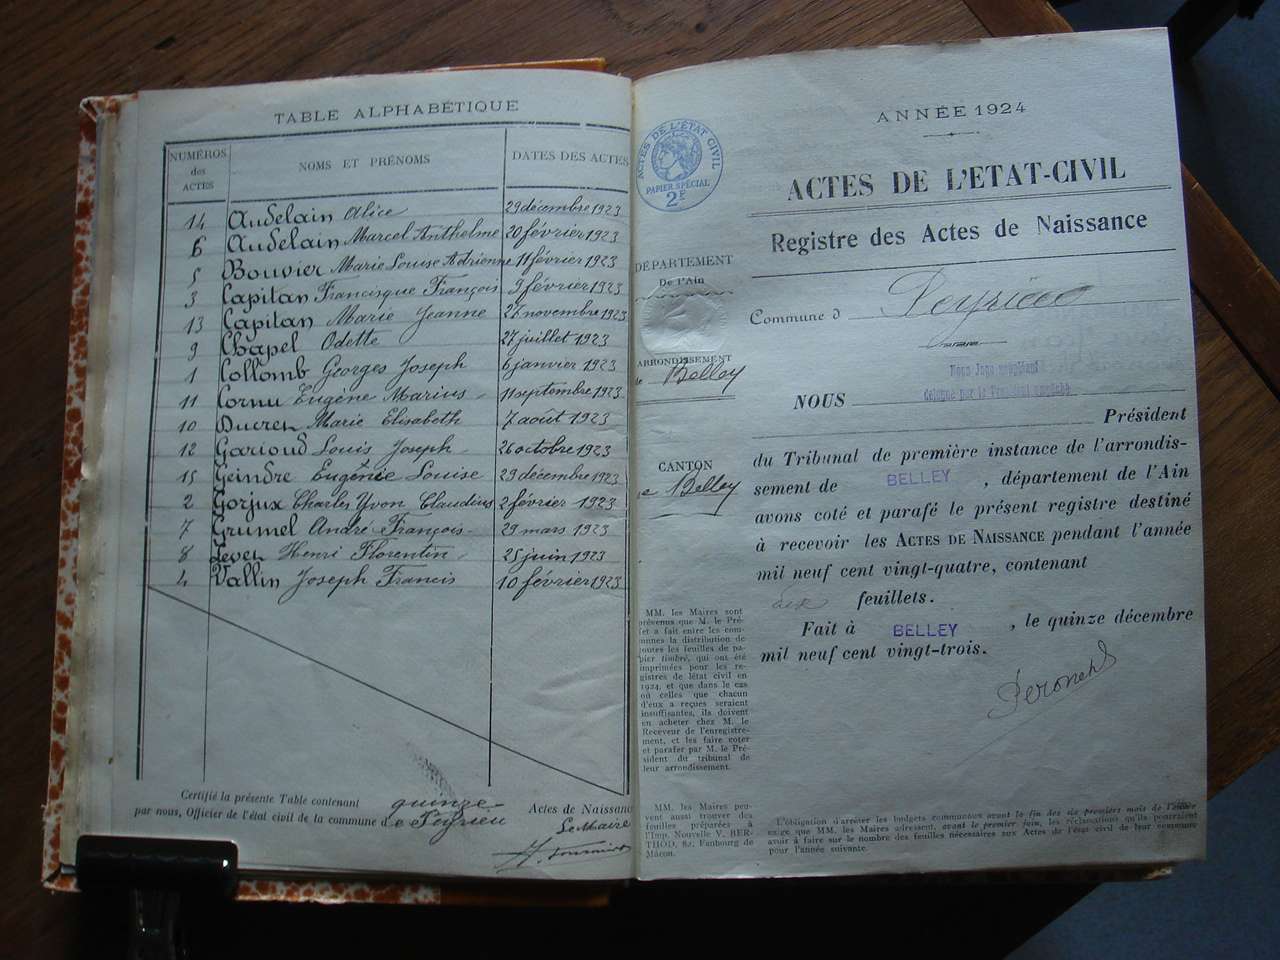 TABLE ALPHABÉTIQUE
NUMÉROS des ACTES
NOMS ET PRÉNOMS
DATES DES ACTES
14 Audelain Alice 29 décembre 1923
6 Audelain Marcel Anthelme 20 février 1923
5 Bouvier Marie Louise Adrienne 11 février 1923
3 Capitan Francisque François 9 février 1923
13 Capitan Marie Jeanne 27 novembre 1923
9 Chapel Odette 27 juillet 1923
1 Collomb Georges Joseph 6 janvier 1923
11 Cornu Eugène Marius 11 septembre 1923
10 Ducren Marie Elisabeth 7 août 1923
12 Garioud Louis Joseph 26 octobre 1923
15 Geindre Eugénie Louise 29 décembre 1923
2 Gorjux Charles Yvon Claudius 2 février 1923
7 Grumel André François 29 mars 1923
8 Henri Florentin 25 juin 1923
4 Vallin Joseph Francis 10 février 1923
Certifié la présente Table contenant quinze Actes de Naissance
par nous, Officier de l'état civil de la commune de Peyrieu
Le Maire
ACTES DE L'ÉTAT CIVIL
PAPIER SPÉCIAL
2F
DÉPARTEMENT
De l'Ain
ARRONDISSEMENT
de Belley
CANTON
de Belley
MM. les Maires sont
prévenus que M. le Pré-
fet a fait entre les com-
munes la distribution de
toutes les feuilles de pa-
pier timbré, qui ont été
imprimées pour les re-
gistres de létat civil en
1924, et que dans le cas
où celles que chacun
d'eux a reçues seraient
insuffisantes, ils doivent
en acheter chez M. le
Receveur de l'enregistre-
ment, et les faire coter
et parafer par M. le Pré-
sident du tribunal de
leur arrondissement.
MM. les Maires peu-
vent aussi trouver des
feuilles préparées à
l'Imp. Nouvelle V. BER-
THOD, 8, Faubourg de
Mâcon.
ANNÉE 1924
ACTES DE L'ETAT-CIVIL
Registre des Actes de Naissance
Commune d Peyrieu
NOUS Nous Juge suppléant
délégué par le Président empêché
Président
du Tribunal de première instance de l'arrondis-
sement de BELLEY, département de l'Ain
avons coté et parafé le présent registre destiné
à recevoir les ACTES DE NAISSANCE pendant l'année
mil neuf cent vingt-quatre, contenant
feuillets.
Fait à BELLEY, le quinze décembre
mil neuf cent vingt-trois.
L'obligation d'arrêter les budgets communaux avant la fin des six premiers mois de l'année
exige que MM. les Maires adressent, avant le premier juin, les réclamations qu'ils pourraient
avoir à faire sur le nombre des feuilles nécessaires aux Actes de l'état civil de leur commune
pour l'année suivante.